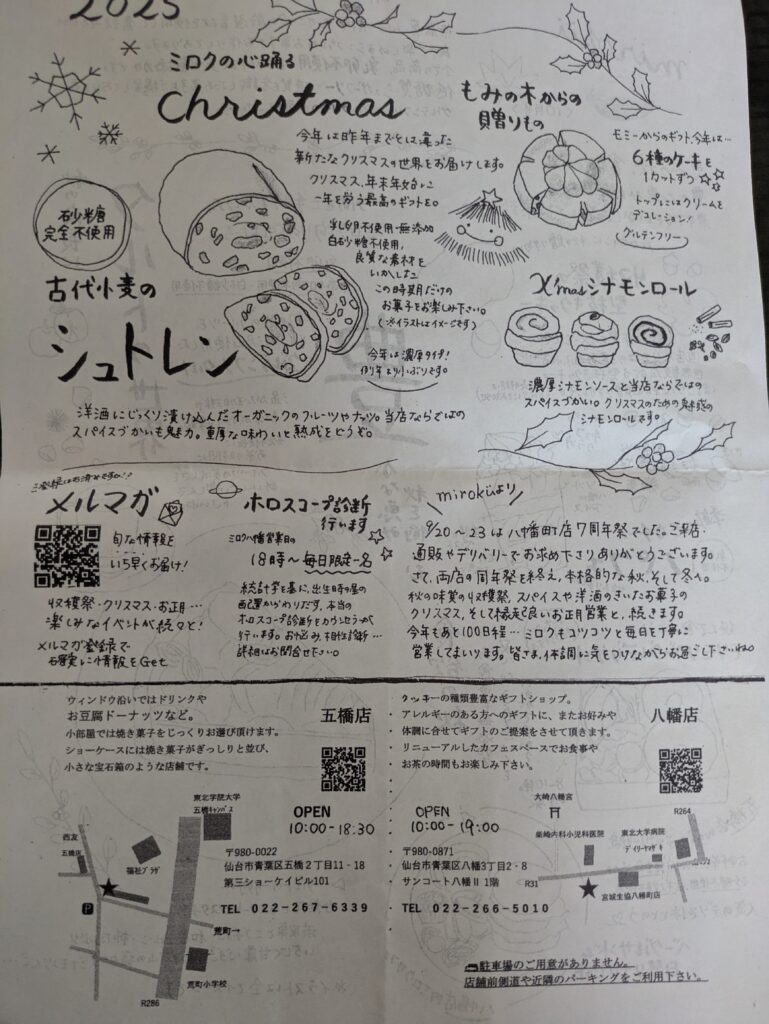 2025
ミロクの心踊る
Christmas
今年は昨年までとは違った
新たなクリスマスの世界をお届けします。
クリスマス、年末年始に
一年を労う最高のギフトを。
乳卵不使用・無添加
白砂糖不使用、
良質な素材を
いかした
この時期だけの
お菓子をお楽しみ下さい。
(※イラストはイメージです)
砂糖
完全不使用
古代小麦の
シュトレン
今年は濃厚タイプ!
例年より小ぶりです。
洋酒にじっくり漬け込んだオーガニックのフルーツやナッツ。当店ならではの
スパイスづかいも魅力。重厚な味わいと熟成をどうぞ。
もみの木からの
贈りもの
モミーからのギフト、今年は…
6種のケーキを
1カットずつ
トップにはクリームを
デコレーション!
グルテンフリー
X'masシナモンロール
濃厚シナモンソースと当店ならではの
スパイスづかい。クリスマスのための魅惑の
シナモンロールです。
ご登録はお済みですか!?
メルマガ
旬な情報を
いち早くお届け!
収穫祭・クリスマス・お正月…
楽しみなイベントが続々と!
メルマガ登録で
確実に情報をGet
ホロスコープ診断
行います
ミロク八幡営業日の
18時〜毎日限定一名
統計学を基に、出生時の星の
配置からわりだす、本当の
ホロスコープ診断をカウンセラーが
行います。お悩み、相性診断…
詳細はお問合せ下さい。
mirokuより
9/20〜23は八幡町店7周年祭でした。ご来店・
通販やデリバリーでお求め下さりありがとうございます。
さて、両店の周年祭を終え、本格的な秋、そして冬へ。
秋の味覚の収穫祭、スパイスや洋酒のきいたお菓子の
クリスマス、そして縁起良いお正月営業と、続きます。
今年もあと100日程…ミロクもコツコツと毎日を丁寧に
営業してまいります。皆さま、体調に気をつけながらお過ごし下さいね
ウィンドウ沿いではドリンクや
お豆腐ドーナッツなど。
小部屋では焼き菓子をじっくりお選び頂けます。
ショーケースには焼き菓子がぎっしりと並び、
小さな宝石箱のような店舗です。
五橋店
東北学院大学
五橋キャンパス
西友
五橋店
福祉プラザ
P
荒町→
荒町小学校
R286
OPEN
10:00-18:30
〒980-0022
仙台市青葉区五橋2丁目11‐18
第三ショーケイビル101
TEL 022-267-6339
クッキーの種類豊富なギフトショップ。
アレルギーのある方へのギフトに、またお好みや
体調に合せてギフトのご提案をさせて頂きます。
リニューアルしたカフェスペースでお食事や
お茶の時間もお楽しみ下さい。
八幡店
OPEN
10:00-19:00
〒980-0871
仙台市青葉区八幡3丁目2‐8
サンコート八幡Ⅱ 1階
TEL 022-266-5010
大崎八幡宮
R264
柴崎内科小児科医院
東北大学病院
デイリーヤマザキ
R31
宮城生協八幡町店
駐車場のご用意がありません。
店舗前側道や近隣のパーキングをご利用下さい。